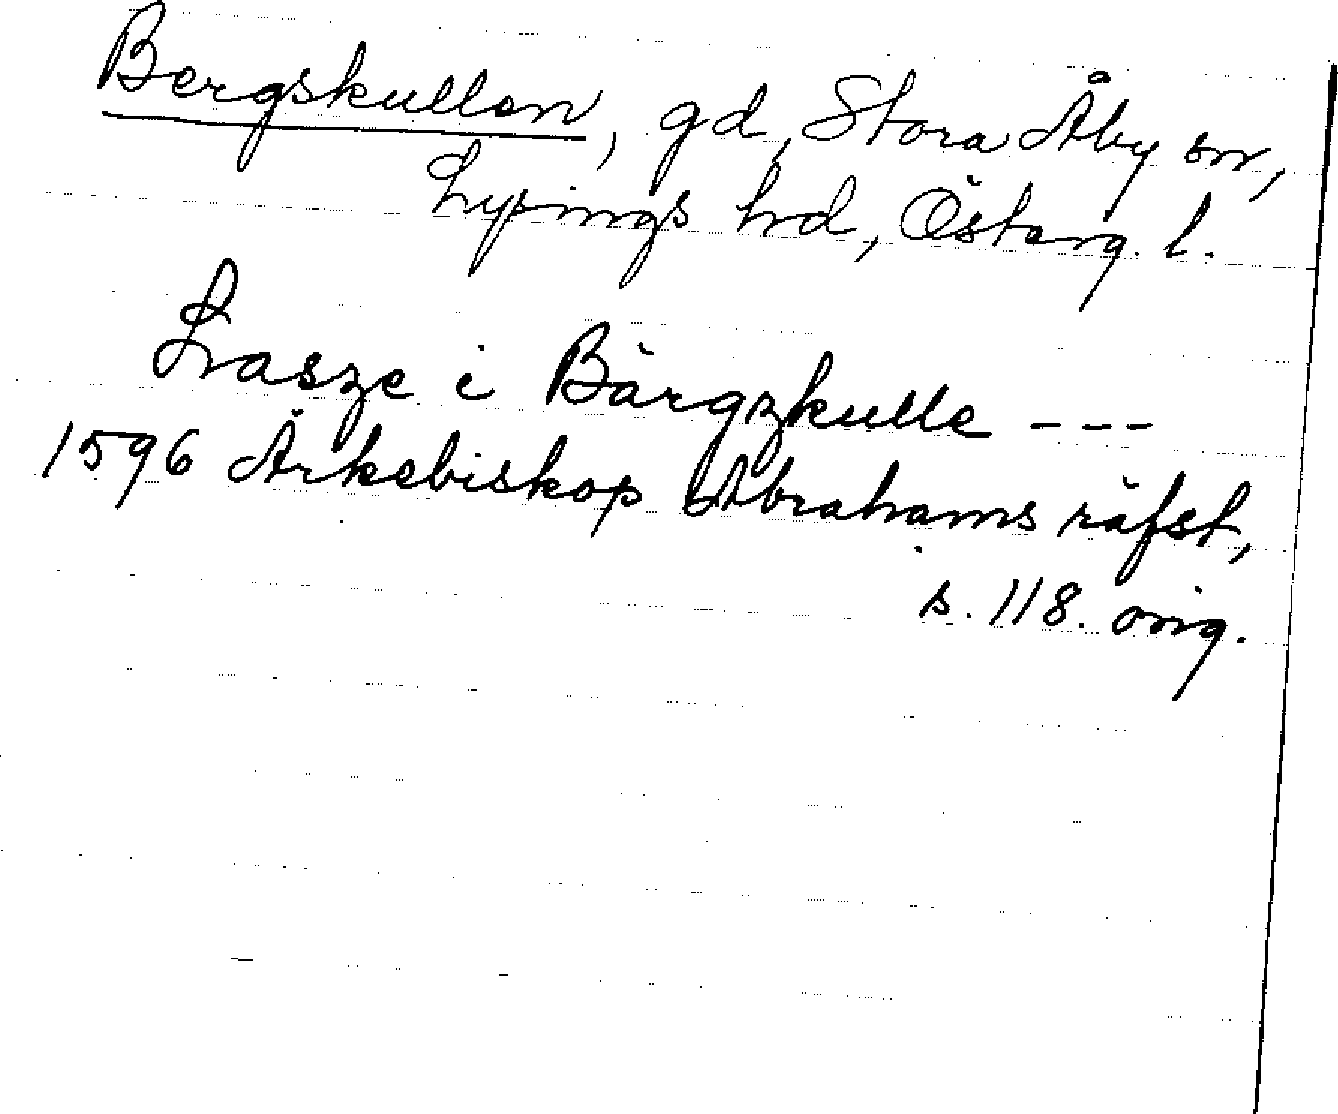 Bergskullen, gd, Stora Åby sn,
Lysings hd, Österg. l.
Lasze i Bärgzkulle ---
1596 Ärkebiskop Abrahams räfst,
s. 118. orig.